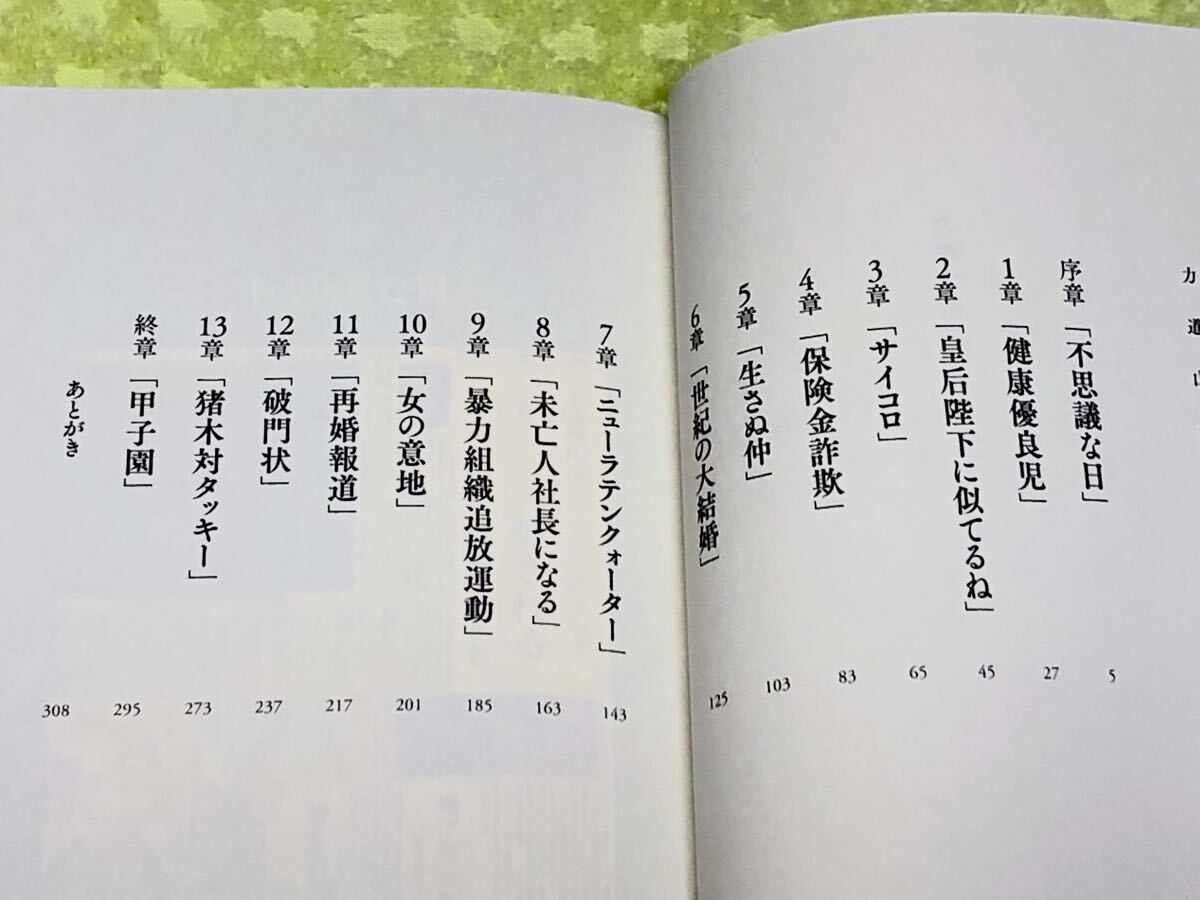 序章 「不思議な日」 5
1章 「健康優良児」 27
2章 「皇后陛下に似てるね」 45
3章 「サイコロ」 65
4章 「保険金詐欺」 83
5章 「生さぬ仲」 103
6章 「世紀の大結婚」 125
7章 「ニューラテンクォーター」 143
8章 「未亡人社長になる」 163
9章 「暴力組織追放運動」 185
10章 「女の意地」 201
11章 「再婚報道」 217
12章 「破門状」 237
13章 「猪木対タッキー」 273
終章 「甲子園」 295
あとがき 308